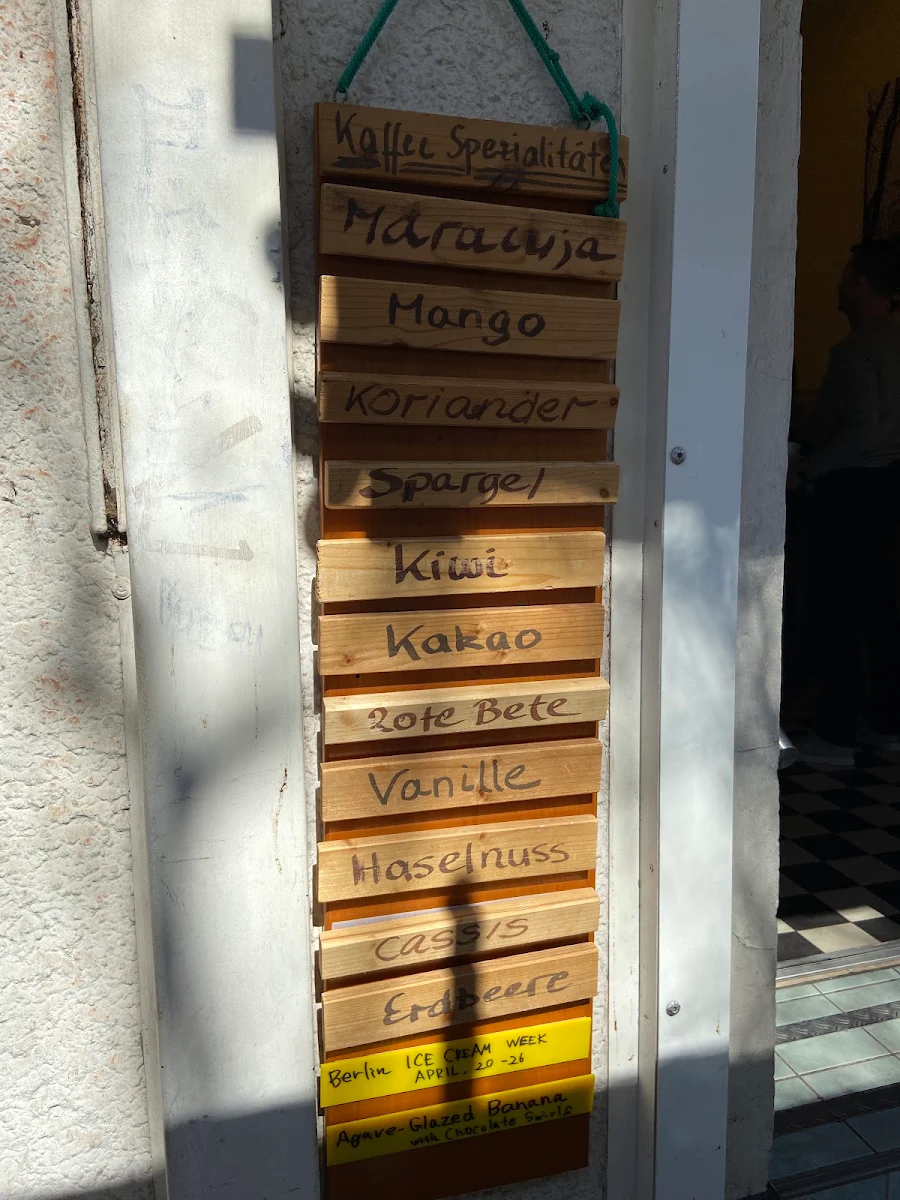 Kaffee Spezialitäten
Maracuja
Mango
Koriander
Spargel
Kiwi
Kakao
Rote Bete
Vanille
Haselnuss
Cassis
Erdbeere
Berlin ICE CREAM WEEK
APRIL, 20 - 26
Agave-Glazed Banana
with Chocolate Swirls